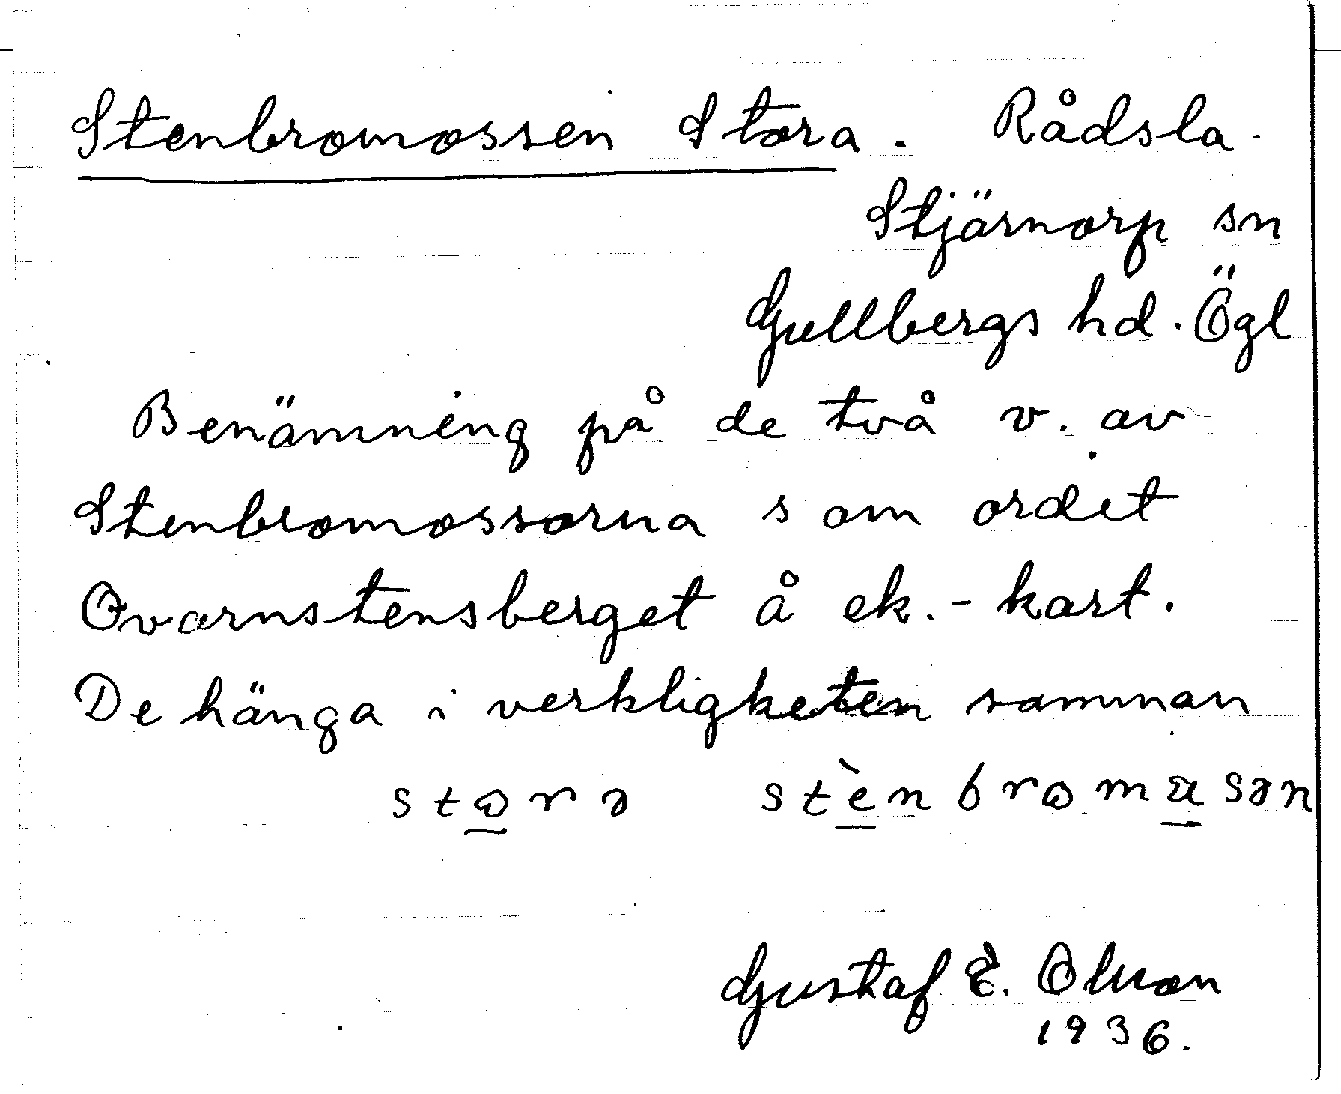 Stenbromossen Stora. Rådsla.
Stjärnorp sn
Gullbergs hd. Ögl
Benämning på de två v. av
Stenbromossorna som ordet
Qvarnstensberget å ek.-kart.
De hänga i verkligheten samman
storə stènbromɷsən
Gustaf E. Olsson
1936.